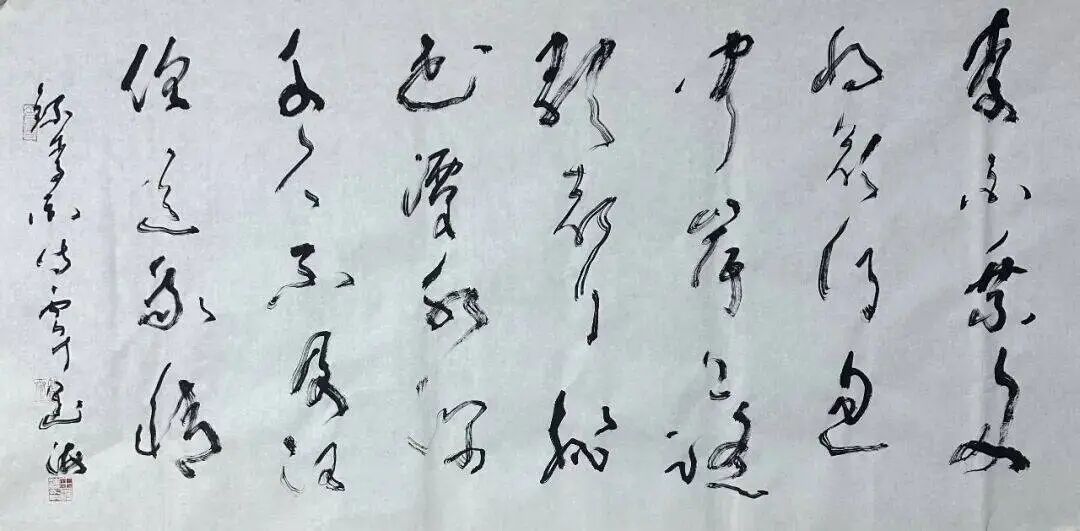 李白乘舟
将欲行忽
闻岸上踏
歌声桃
花潭水深
千尺不及汪
伦送我情
录李白诗